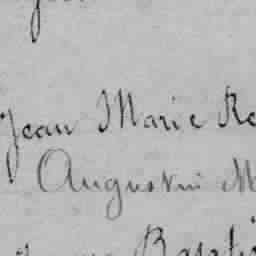 Jean Marie Re
Augustin M
Baptis